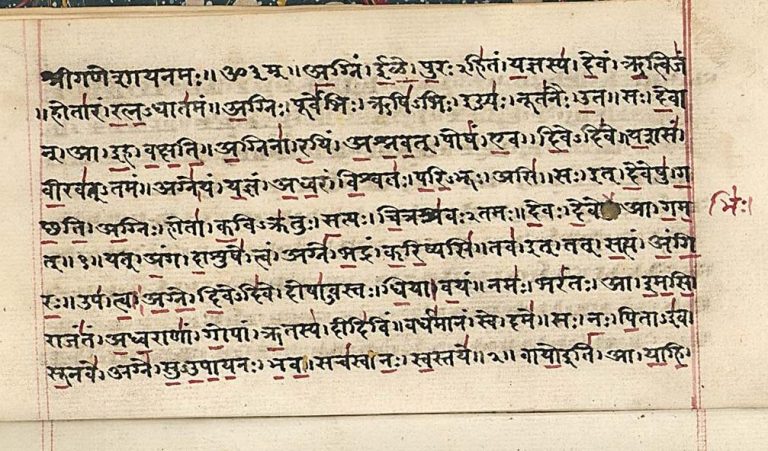 श्रीगणेशायनमः॥ ॐ३म्॥ अग्निं। ईळे। पुरःऽहितं। यज्ञस्य। देवं। ऋत्विजं
॥होतारं। रत्नऽधातमं॥ अग्निः। पूर्वेभिः। ऋषिऽभिः। ईड्यः। नूतनैः। उत॥ सः। देवा
न्। आ। इह। वक्षति॥ अग्निना। रयिं। अश्नवत्। पोषं। एव। दिवेऽदिवे॥ यशसं
वीरवत्ऽतमं॥ अग्ने। यं। यज्ञं। अध्वरं। विश्वतः। परिऽभूः। असि॥ सः। इत्। देवेषु। ग
छति। अग्निः। होता। कविऽक्रतुः। सत्यः। चित्रश्रवःऽतमः॥ देवः। देवे आ। गम भिः।
त्॥१॥ यत्। अंग। दाशुषे। त्वं। अग्ने। भद्रं। करिष्यसि॥ तव। इत्। तत्। सत्यं। अंगि
रः॥ उप। त्वा। अग्ने। दिवेऽदिवे। दोषाऽवस्तः। धिया। वयं॥ नमः। भरंतः। आ। इमसि
राजंतं। अध्वराणां। गोपां। ऋतस्य। दीदिविं॥ वर्धमानं। स्वे। दमे॥ सः। नः। पिताऽइव
सूनवे। अग्ने। सुऽउपायनः। भव॥ सचस्व। नः। स्वस्तये॥२॥ वायो इति। आ। याहि।